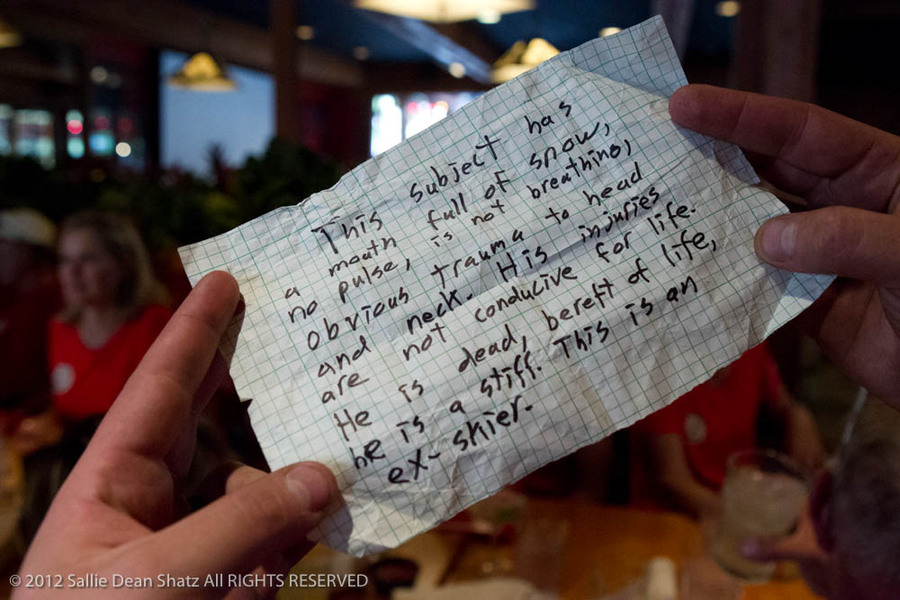 This subject has
a mouth full of snow,
no pulse, is not breathing,
obvious trauma to head
and neck. His injuries
are not conducive for life.
He is dead, bereft of life,
he is a stiff. This is an
ex-skier.
© 2012 Sallie Dean Shatz All RIGHTS RESERVED